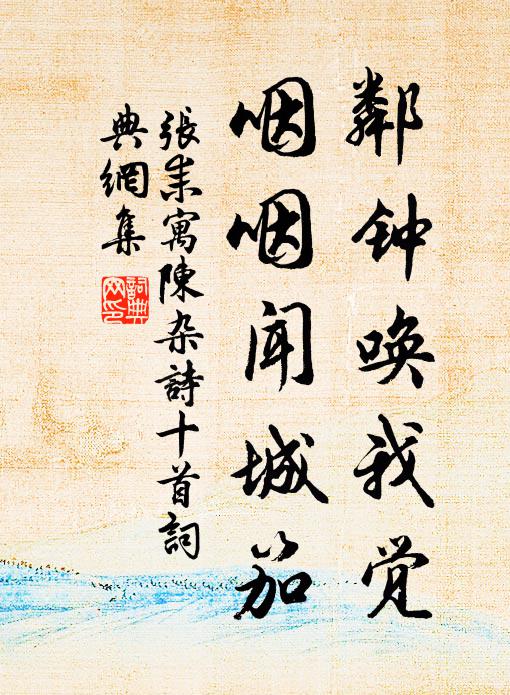 鄰钟唤我觉
咽咽闻城笳
張耒寓陳杂詩十首詞
典網集
詞典
网印